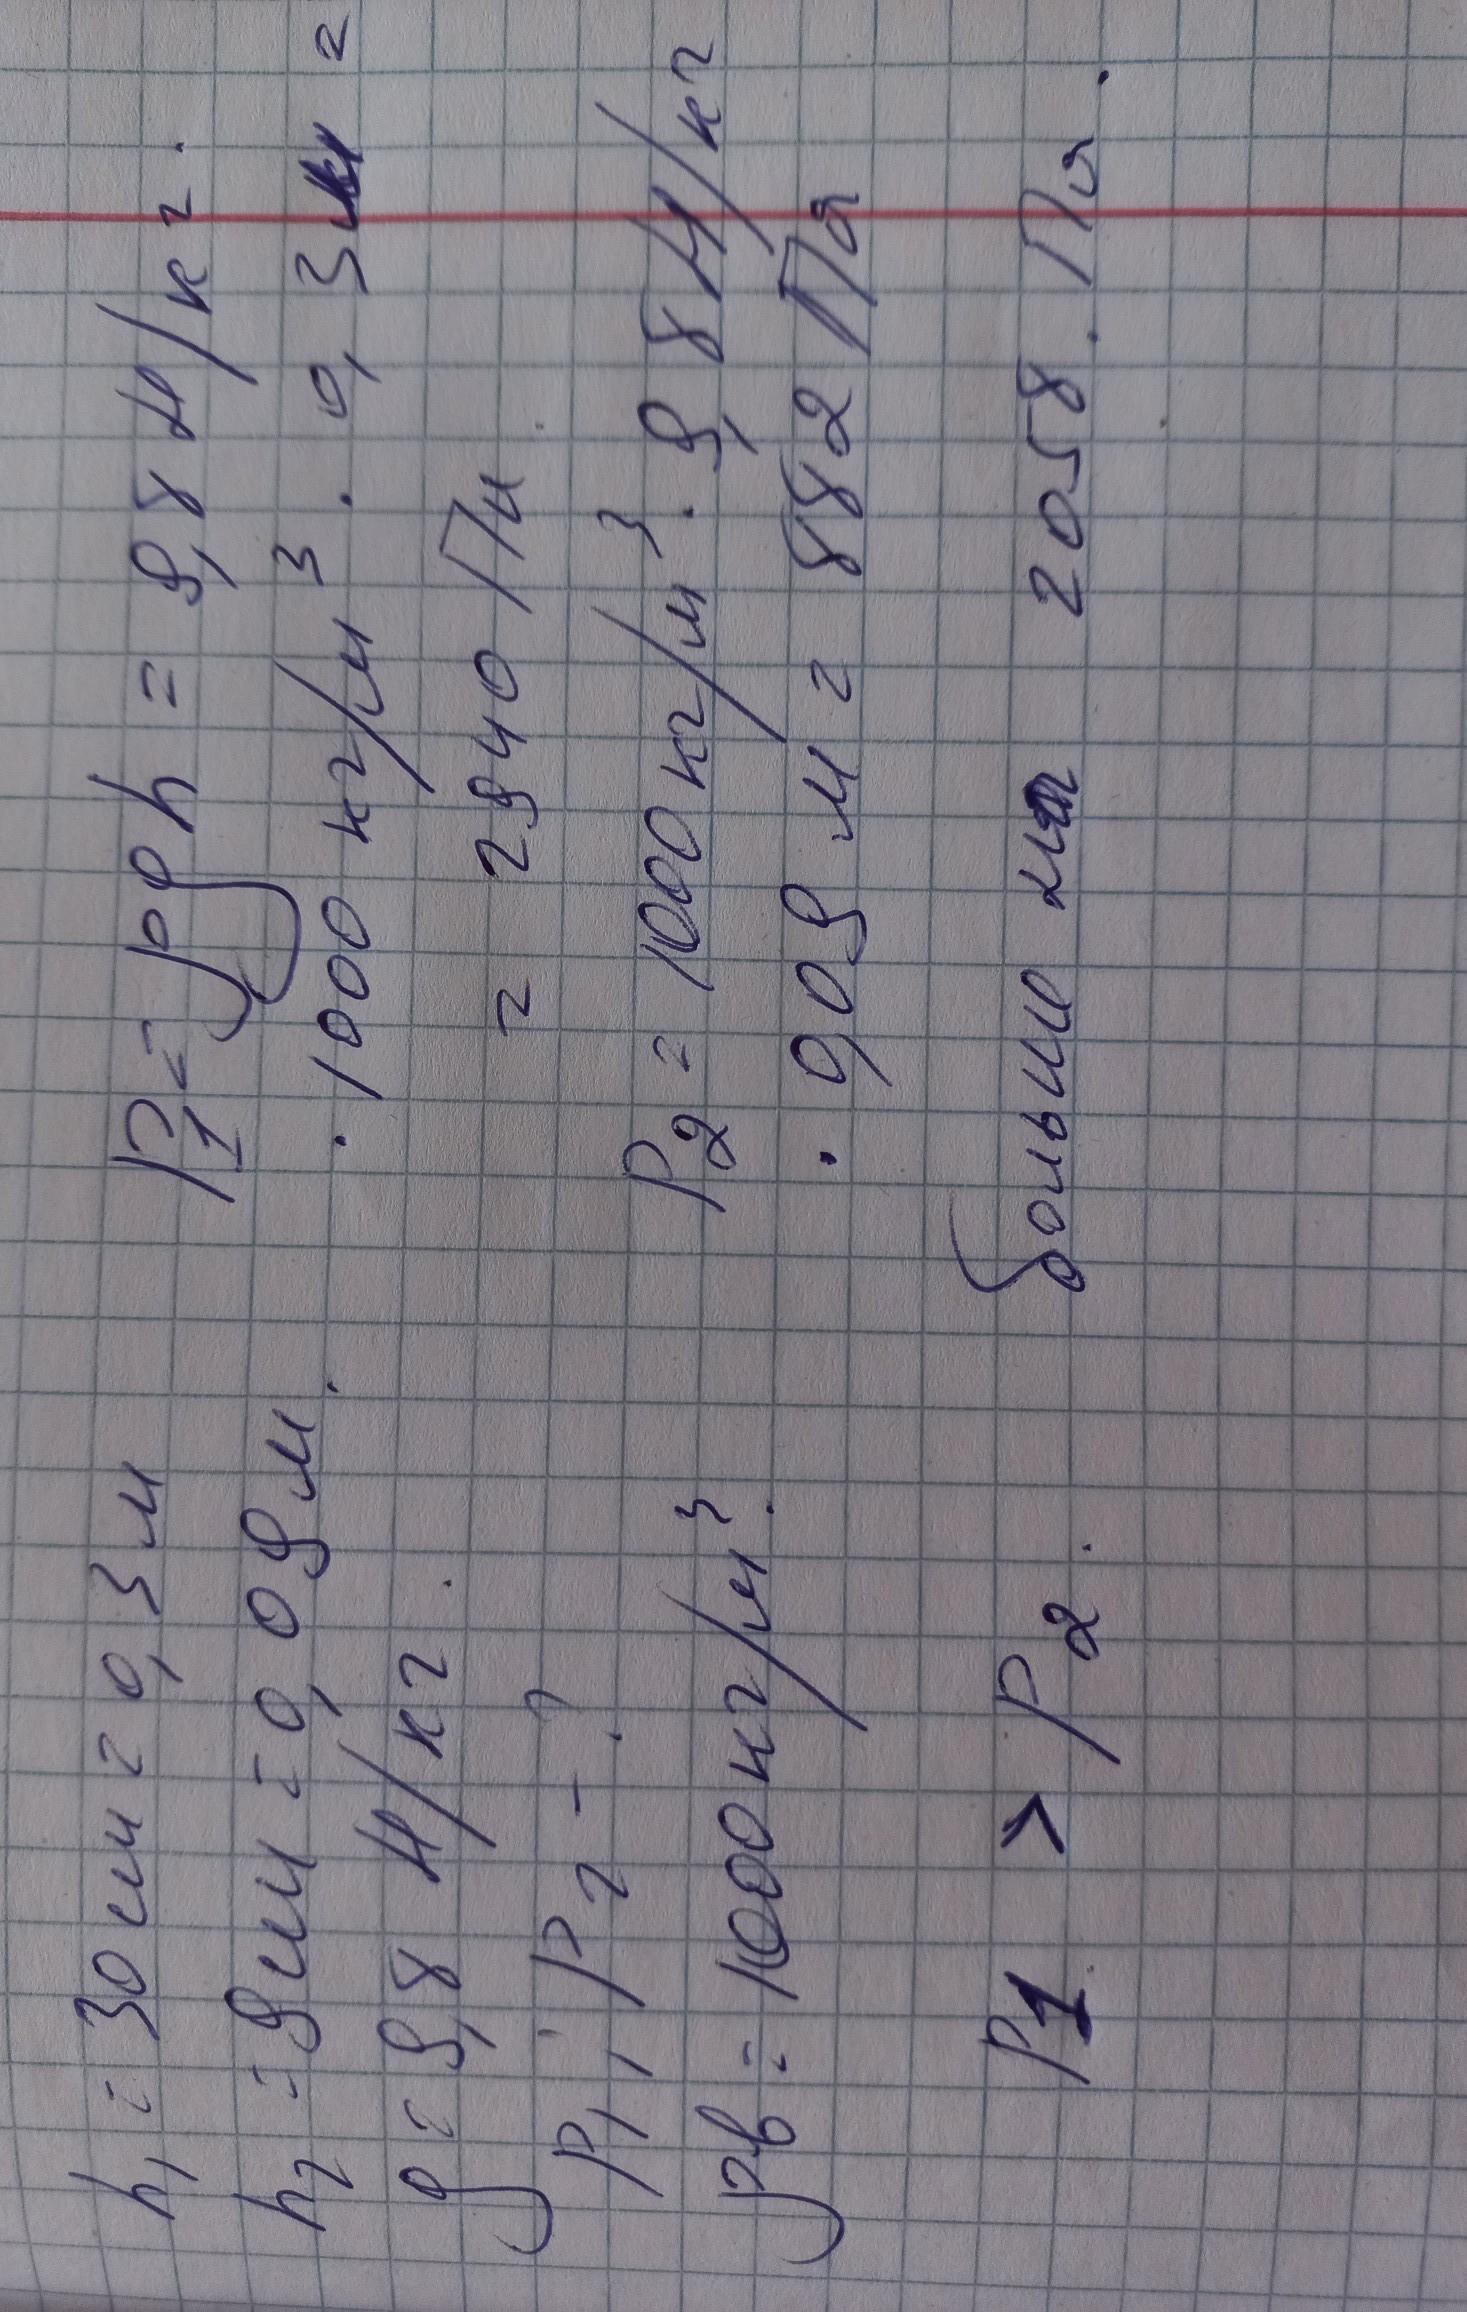 h₁ = 30 см = 0,3 м
h₂ = 9 см = 0,09 м.
g = 9,8 Н/кг
p₁, p₂ - ?
ρв = 1000 кг/м³.
P₁ = ρgh = 9,8 Н/кг ·
· 1000 кг/м³ · 0,3м =
= 2940 Па
P₂ = 1000 кг/м³ · 9,8 Н/кг
· 0,09 м = 882 Па
P1 > P₂. больше на 2058. Па.